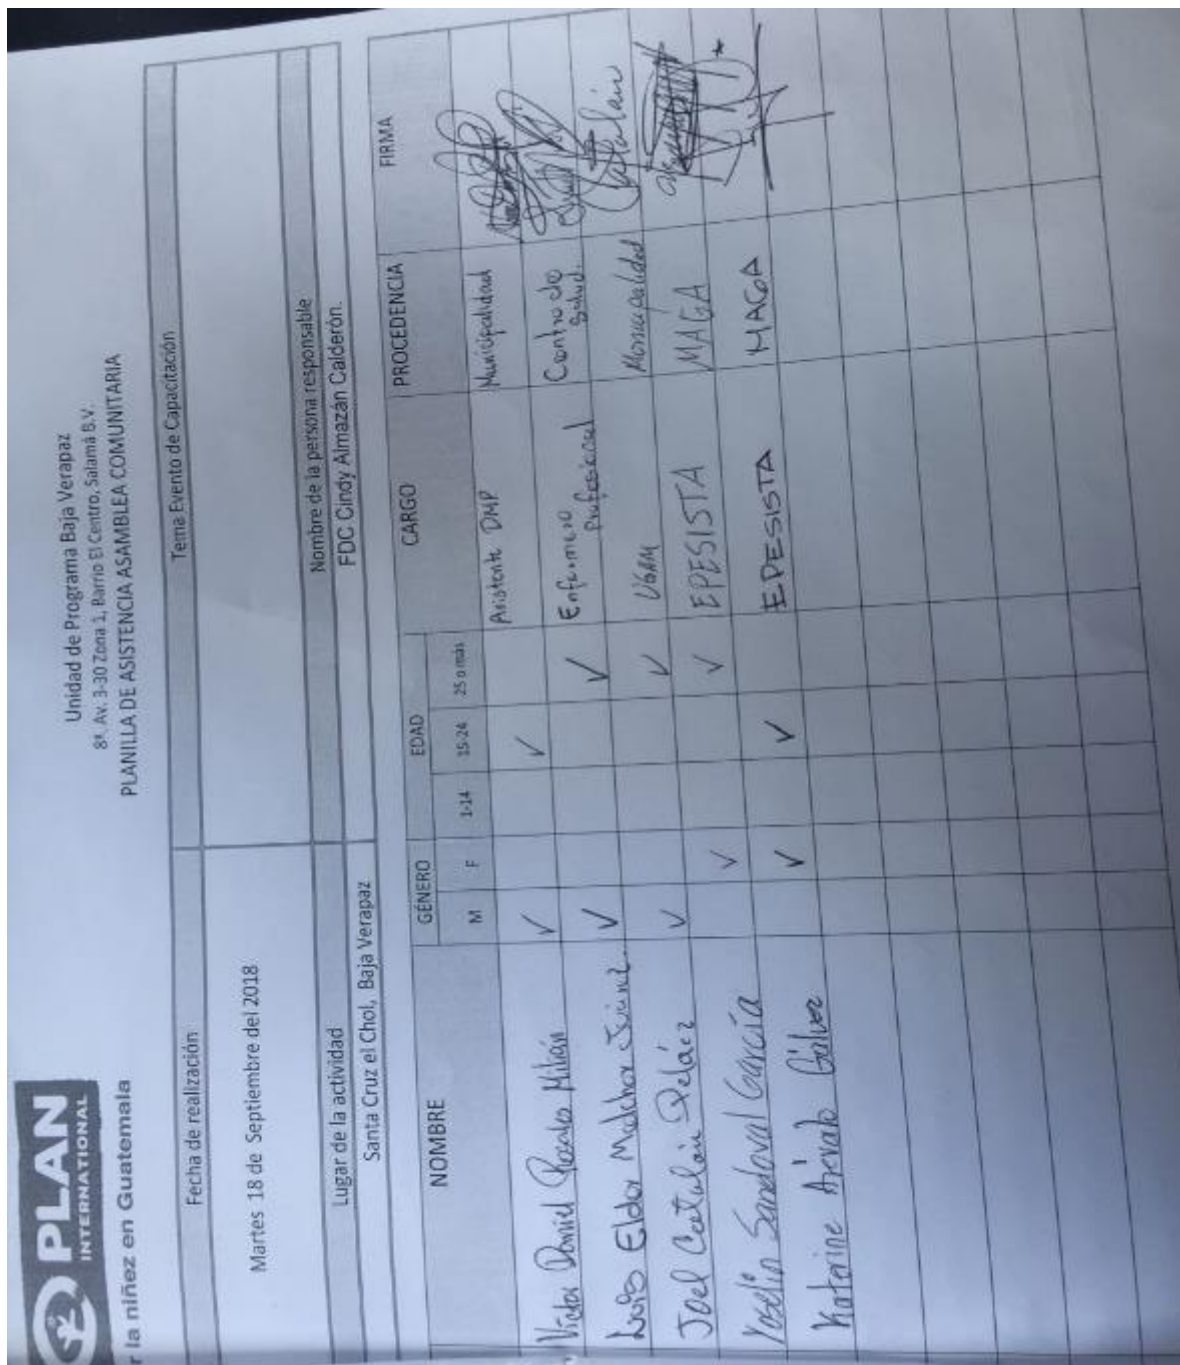 PLAN
INTERNATIONAL
r la niñez en Guatemala
Unidad de Programa Baja Verapaz
8ª. Av. 3-30 Zona 1, Barrio El Centro, Salamá B.V.
PLANILLA DE ASISTENCIA ASAMBLEA COMUNITARIA
Fecha de realización Tema Evento de Capacitación
Martes 18 de Septiembre del 2018
Lugar de la actividad Nombre de la persona responsable
Santa Cruz el Chol, Baja Verapaz FDC Cindy Almazán Calderón.
NOMBRE GÉNERO EDAD CARGO PROCEDENCIA FIRMA
M F 1-14 15-24 25 o más
Victor Daniel Rosales Milián ✓ ✓ Asistente DMP Municipalidad
Luis Elder Melchor ✓ ✓ Enfermero Profesional Centro de Salud.
Joel Catalán Peláez ✓ ✓ UGAM Municipalidad Catalán
Yoselin Sandoval García ✓ ✓ EPESISTA MAGA
Katerine Arévalo Gálvez ✓ ✓ EPESISTA MAGA